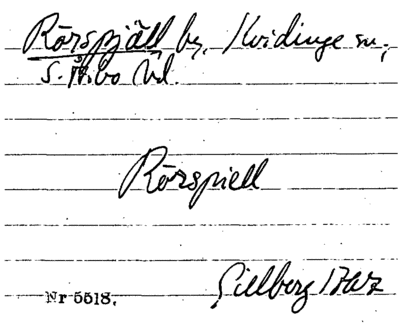 Rörspjäll by, Kvidinge sn,
S. Åsbo hd.
Rörspiell
Gillberg 1767
Nr 5518.